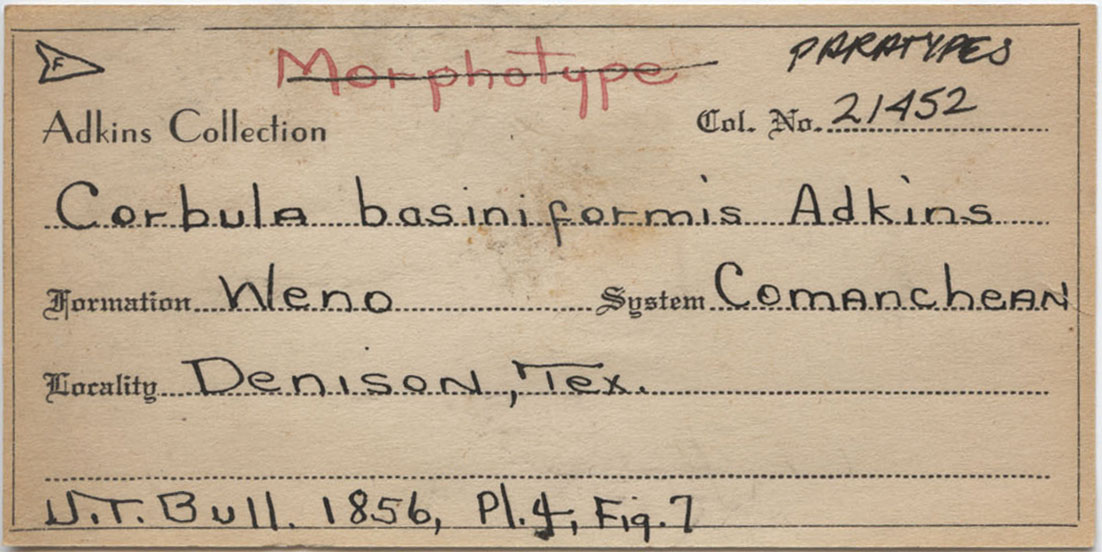 F
Morphotype
PARATYPES
Adkins Collection
Col. No. 21452
Corbula basiniformis Adkins
Formation Weno System Comanchean
Locality Denison, Tex.
U.T. Bull. 1856, Pl. 4, Fig. 7